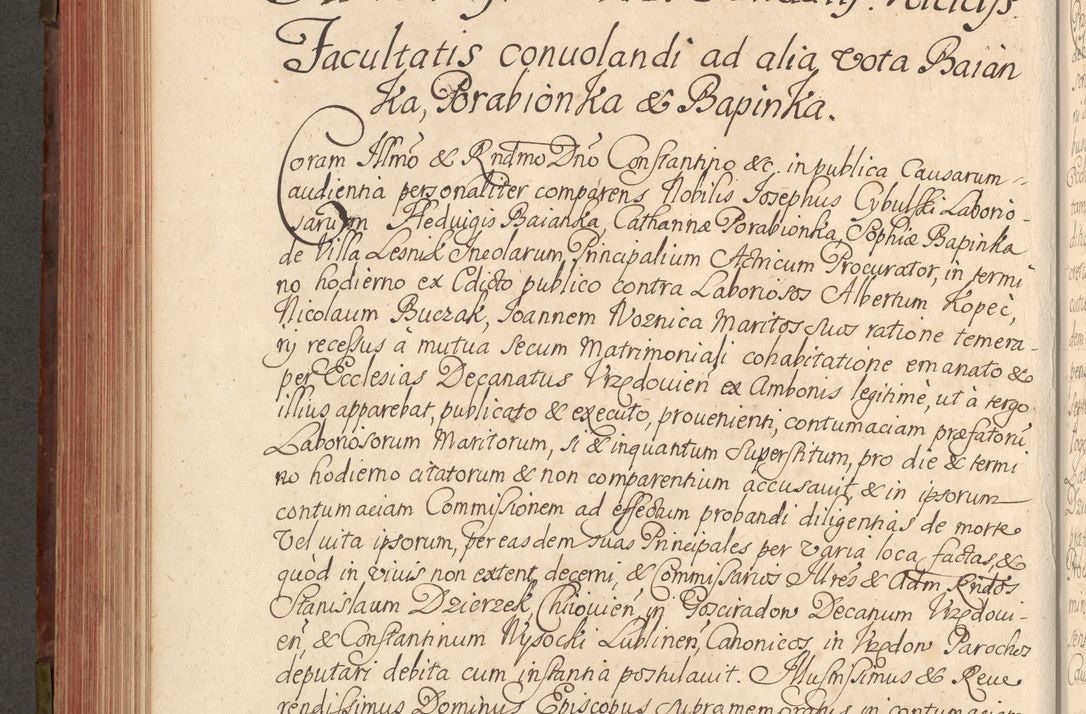 Facultatis convolandi ad alia vota Baian
ka, Porabionka & Bapinka.
Coram Illmo & Rndmo Dno Constantino &c. in publica Causarum
audientia personaliter comparens Nobilis Josephus Cybulski Laborio-
sarum Hedvigis Baianka, Catharinæ Porabionka, Sophiæ Bapinka
de Villa Lesnik Incolarum Principalium Actricum Procurator, in termi
no hodierno ex Edicto publico contra Laboriosos Albertum Kopeć,
Nicolaum Buczak, Joannem Woznica Maritos suos ratione temera-
rij recessus à mutua secum Matrimoniali cohabitatione emanato &
per Ecclesias Decanatus Urzedovien ex Ambonis legitimè, ut à tergo
illius apparebat, publicato & executo, provenienti, contumaciam præfatorū
Laboriosorum Maritorum, si & inquantum superstitum, pro die & termi
no hodierno citatorum & non comparentium accusavit, & in ipsorum
contumaciam Commissionem ad effectum probandi diligentias de morte
vel vita ipsorum, per easdem suas Principales per varia loca factas, &
quòd in vivis non extent, decerni, & Commissarios Illres & Adm. Rndos
Stanislaum Dzierzek, Chiiovien, in Gosciradow Decanum Urzedovi-
en, & Constantinum Wysocki Lublinen, Canonicos, in Urzedow Parochos
deputari debita cum instantia postulavit. Illustrissimus & Reve
rendissimus Dominus Episcopus supramemoratus in contumaciam